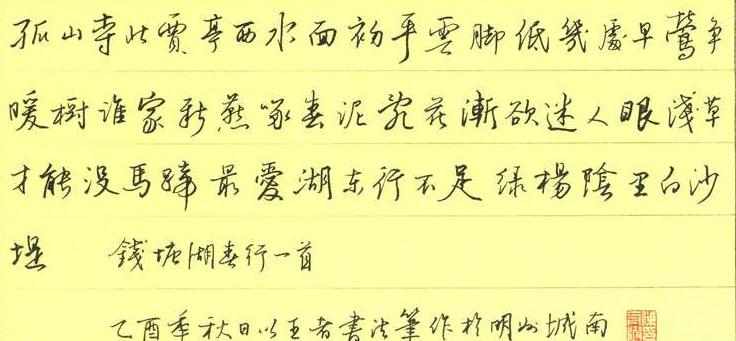 孤山寺北賈亭西水面初平雲脚低幾處早鶯争
暖樹誰家新燕啄春泥亂花漸欲迷人眼淺草
才能没馬蹄最愛湖東行不足绿楊陰里白沙
堤 錢塘湖春行一首
乙酉年秋日以王者書法筆作於明州城南